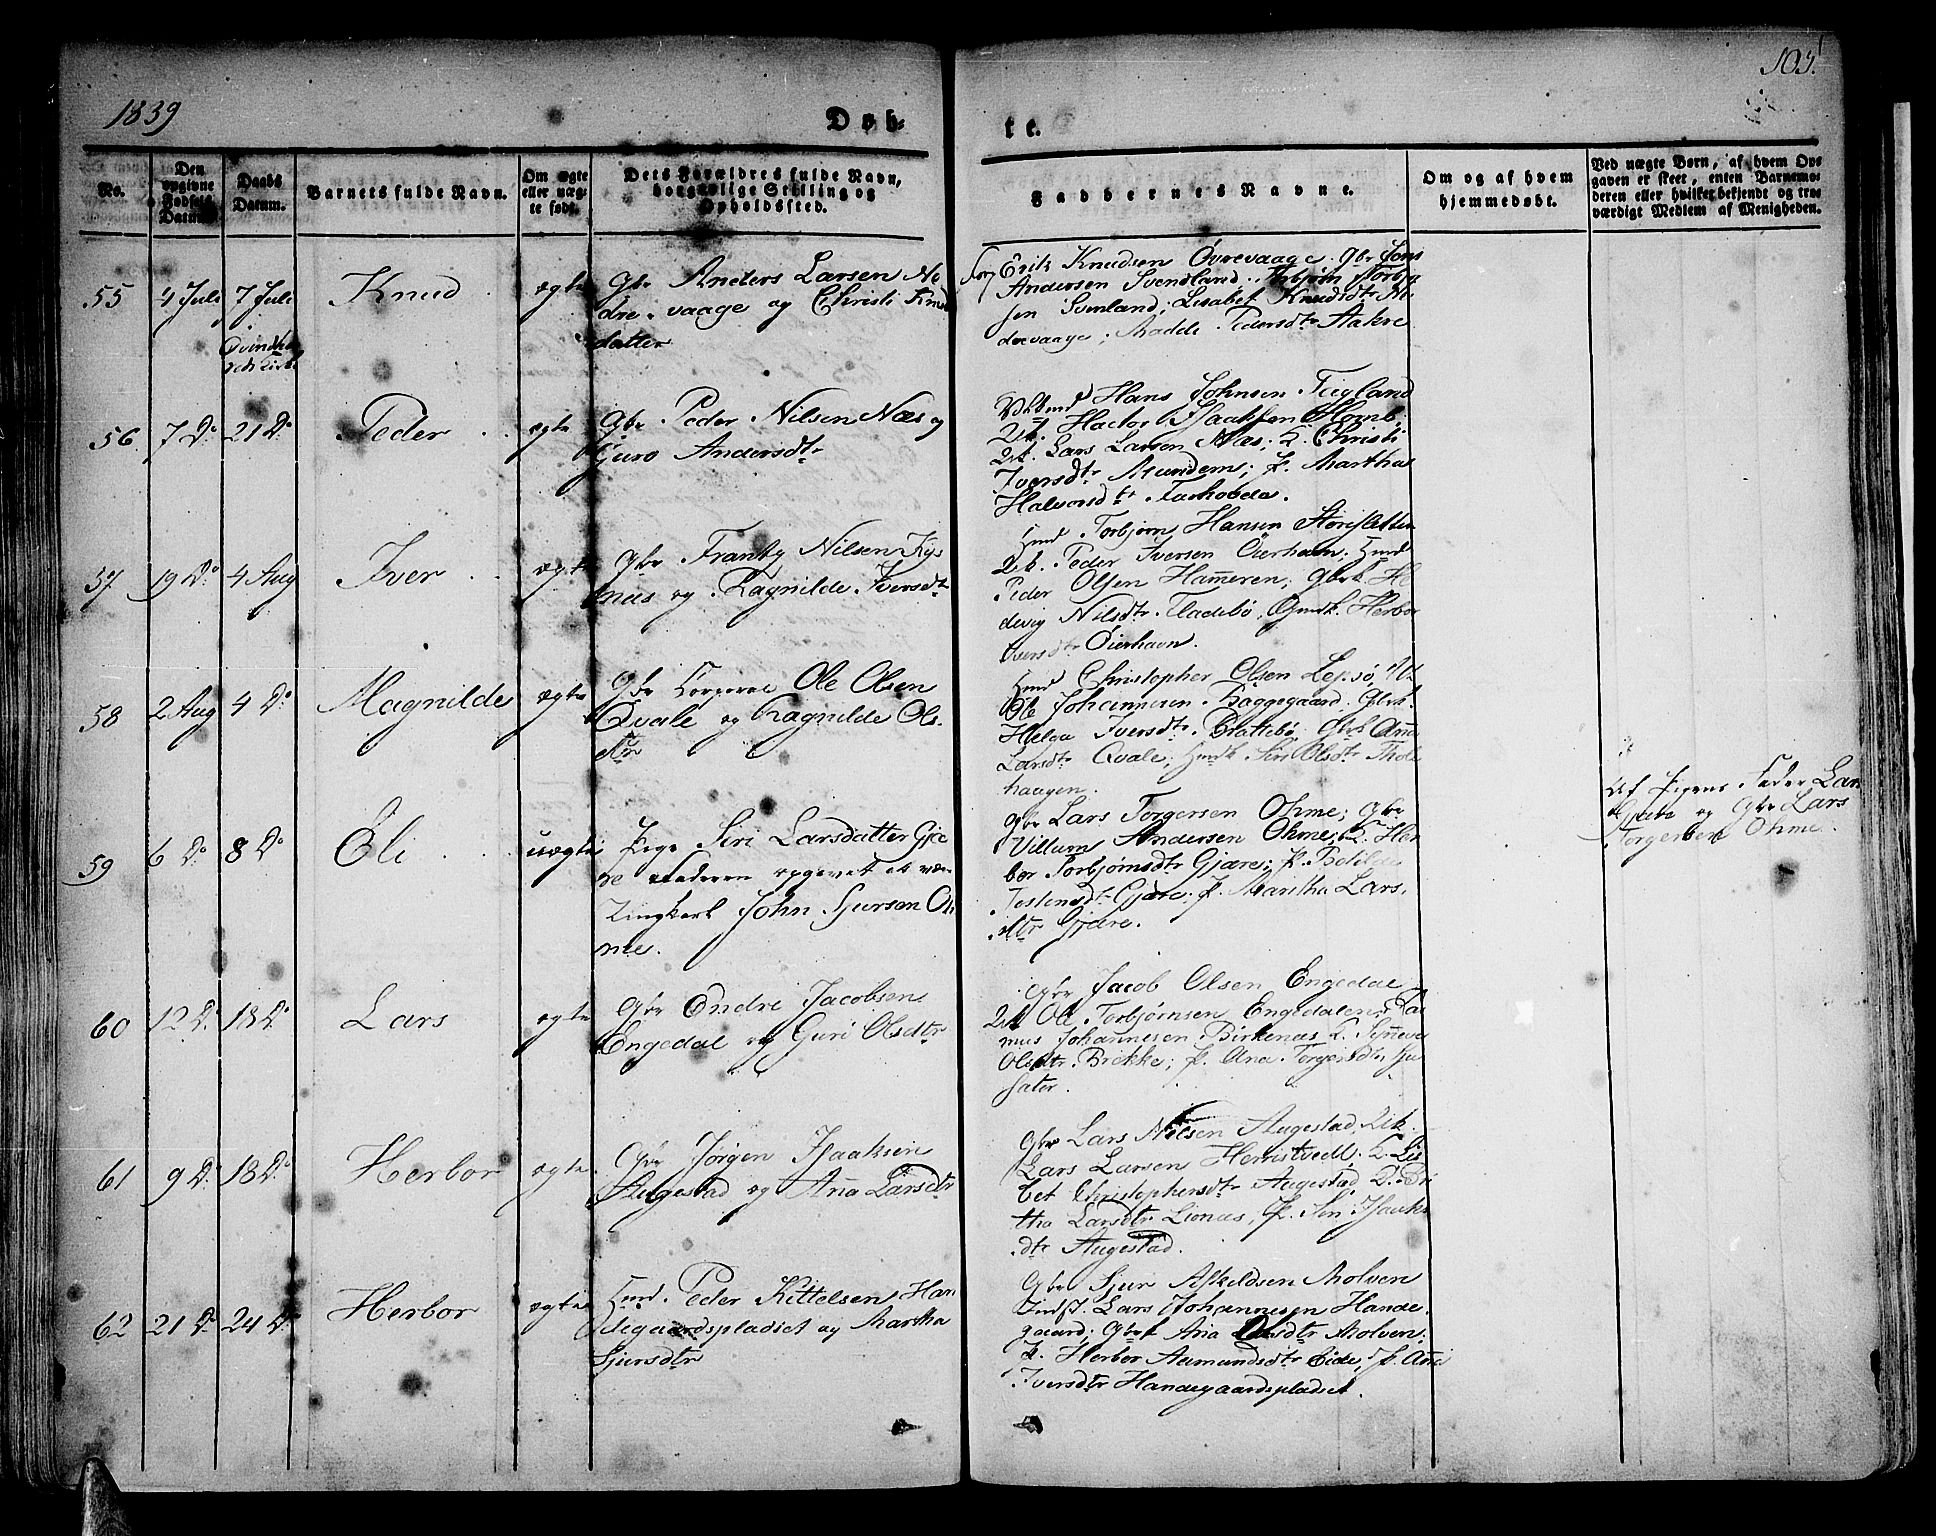 1839
105.
Døb-
te.
No.
Den opgivne Fødsels Datum.
Daabs Datum.
Barnets fulde Navn.
Om ægte eller uægte født.
Dets Forældres fulde Navn, borgerlige Stilling og Opholdssted.
Faddernes Navne.
Om og af hvem hjemmedøbt.
Ved uægte Børn, af hvem Opgaven er skeet, enten Barnemoderen eller hvilket bekjendt og troværdigt Medlem af Menigheden.
55
4 Juli
7 Juli
Knud
ægte
Gbr Anders Larsen Ne
dre-vaage og Christi Knud
datter
Erik Knudsen Øvrevaage. Gbr Jons
Andersen Svendland. Torbjørn Torbjø
sen Svenland; Lisabet Knudsdtr Ne
drevaage; Madde Pedersdtr Aakre
56
7 Do
21 Do
Peder
ægte
Gbr Peder Nilsen Næs og
Guro Andersdtr
Hans Johnsen Teigland
Lars Larsen Næs; Christi
Iversdtr Mundem; P. Martha
Halvorsdtr
57
19 Do
4 Aug
Iver
ægte
Gbr Nilsen
næs og Ragnilde Iversdtr
Hmd Torbjørn Hansen
Peder Iversen Øierhavn; Hmd
Peder Olsen Hammeren; Gbrk He
devig Nilsdtr Fladebø, Gmdk Herbor
Iversdtr Øierhavn.
58
2 Aug
4 Do
Magnilde
ægte
Gbr Corporal Ole Olsen
Qvale og Ragnilde Ols
dtr
Hmd Christopher Olsen Lepsø,
Ole Johannesen Baggegaard, Gbrk
Helga Iversdtr Brattebø, Gbrk Anna
Larsdtr Qvale; Hmdk Siri Olsdtr Thole
haagen.
59
6 Do
8 Do
Eli
uægte
Pige Siri Larsdatter Gjæ
re Faderen opgivet at være
Ungkarl John Sjursen Oh
me.
Gbr Lars Torgersen Ohme; Gbr
Villum Andersen Ohme; P. Her
bor Torbjørnsdtr Gjære; P. Botilde
Tostensdtr Gjære; P. Maritha Lars
dtr Gjære.
Af Pigens Fader Lars
Gjære og Gbr Lars
Torgersen Ohme.
60
12 Do
18 Do
Lars
ægte
Gbr Endre Jacobsen
Engedal og Guri Olsdtr
Gbr Jacob Olsen Engedal
Ole Torbjørnsen Engedalen; Ras
mus Johannesen Birkenæs P. Synneva
Olsdtr Brekke; P. Ana Torgersdtr Sju
sater.
61
9 Do
18 Do
Herbor
ægte
Gbr Jørgen Isaaksen
Augestad og Anna Larsdtr
Gbr Lars Nilsen Augestad,
Lars Larsen Herrestvedt. P. Lis
bet Christophersdtr Augestad P. Bri
tha Larsdtr Lionæs, P. Siri Isaaks
dtr Augestad.
62
21 Do
24 Do
Herbor
ægte
Hmd. Peder Kittelsen Han
degaardspladset og Martha
Sjursdtr
Gbr Sjur Askeldsen Molven
Indst. Lars Johannesen Hande
gaard; Gbrk Ana Olsdtr Molven.
P. Herbor Aamundsdtr Eide, P. Anna
Iversdtr Handegaardspladset.